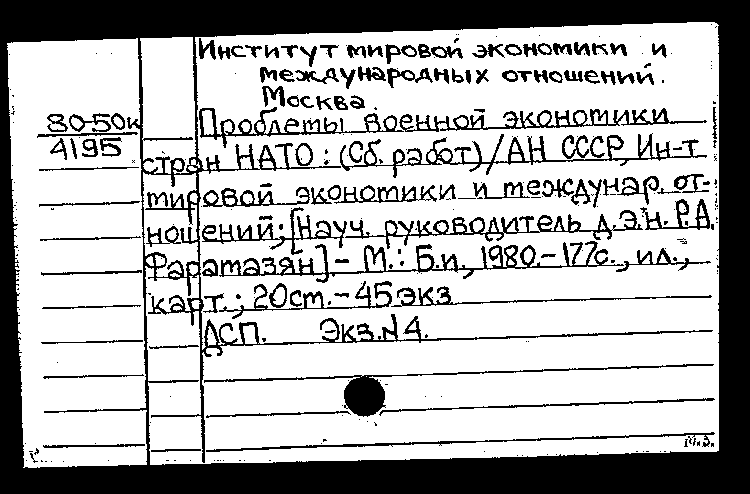 Институт мировой экономики и
международных отношений.
Москва.
80-50к
4195
Проблемы военной экономики
стран НАТО: (Сб. работ)/АН СССР, Ин-т
мировой экономики и междунар. от-
ношений; [Науч. руководитель д.э.н. Р.А.
Фарамазян]. - М.: Б.и., 1980. - 177с., ил.,
карт.; 20ст. - 45экз
ДСП. Экз. №4.